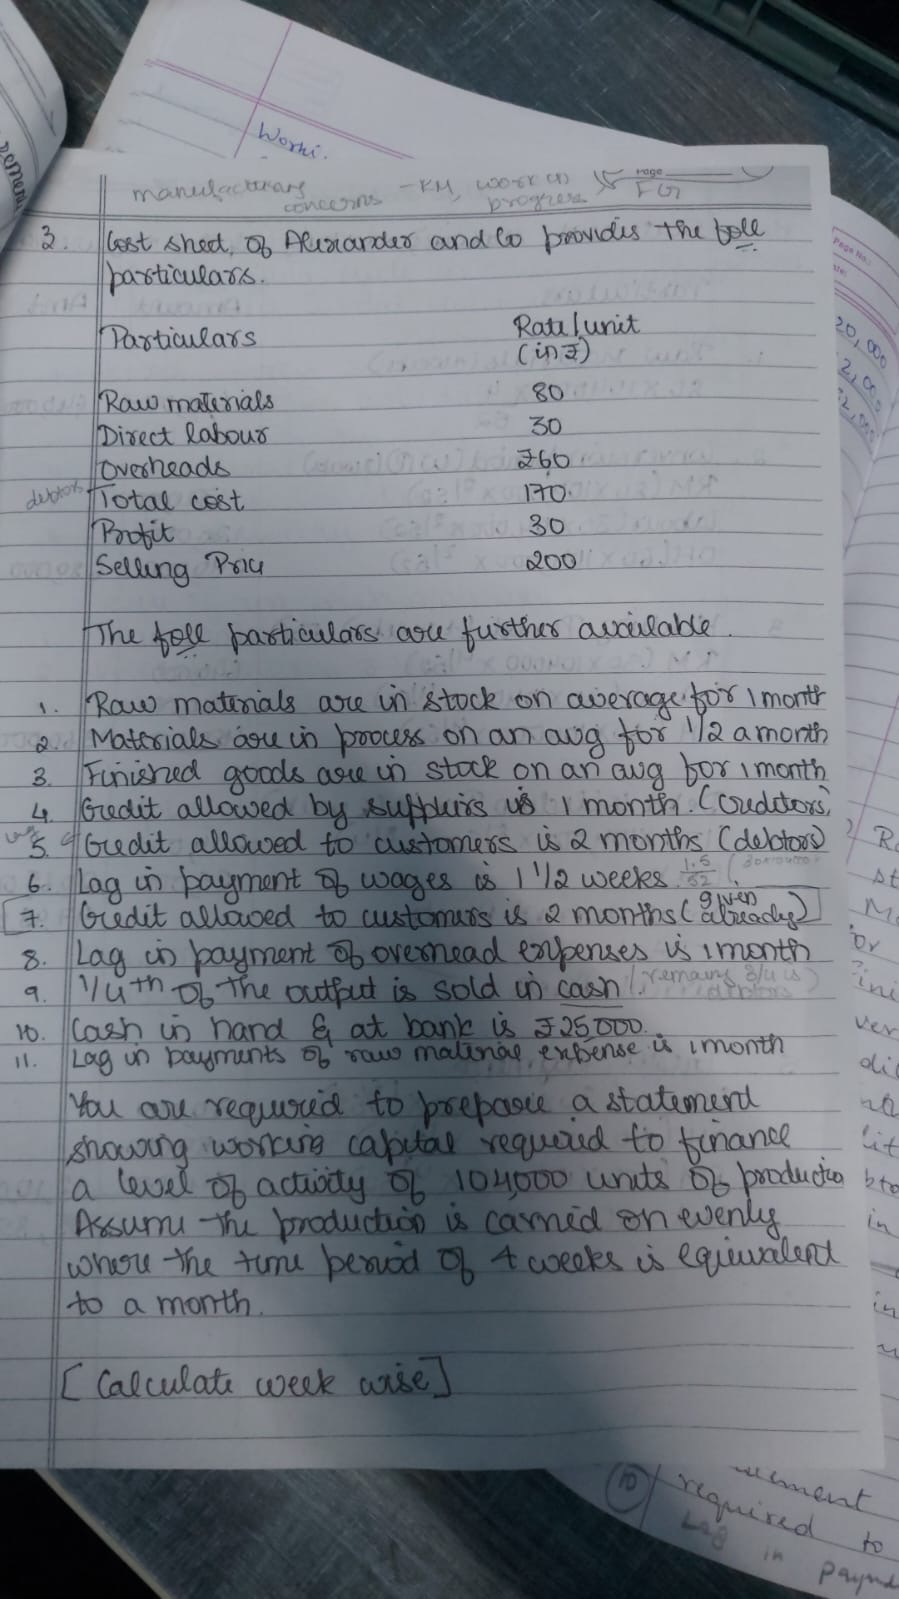 Worki.
manufacturing concerns - RM, work in progress FG
Page
3. Cost sheet of Alexander and Co provides the foll
particulars.
Particulars Rate/unit
(in ₹)
Raw materials 80
Direct labour 30
Overheads ₹60
debtors Total cost 170
Profit 30
Selling Price 200
The foll particulars are further available.
1. Raw materials are in stock on average for 1 month
2 Materials are in process on an avg for 1/2 a month
3. Finished goods are in stock on an avg for 1 month
4. Credit allowed by suppliers is 1 month. (creditors)
5. Credit allowed to customers is 2 months (debtors)
6. Lag in payment of wages is 1 1/2 weeks 1.5/52
7. Credit allowed to customers is 2 months (given already)
8. Lag in payment of overhead expenses is 1 month
9. 1/4th of the output is sold in cash (remaing 3/4 is debtors)
10. Cash in hand & at bank is ₹25000.
11. Lag in payments of raw material expense is 1 month
You are required to prepare a statement
showing working capital required to finance
a level of activity of 104,000 units of productio
Assume the production is carried on evenly
where the time period of 4 weeks is equivalent
to a month.
[Calculate week wise]
Page No.:
20,000
2,000
10 required to
Lag in payme